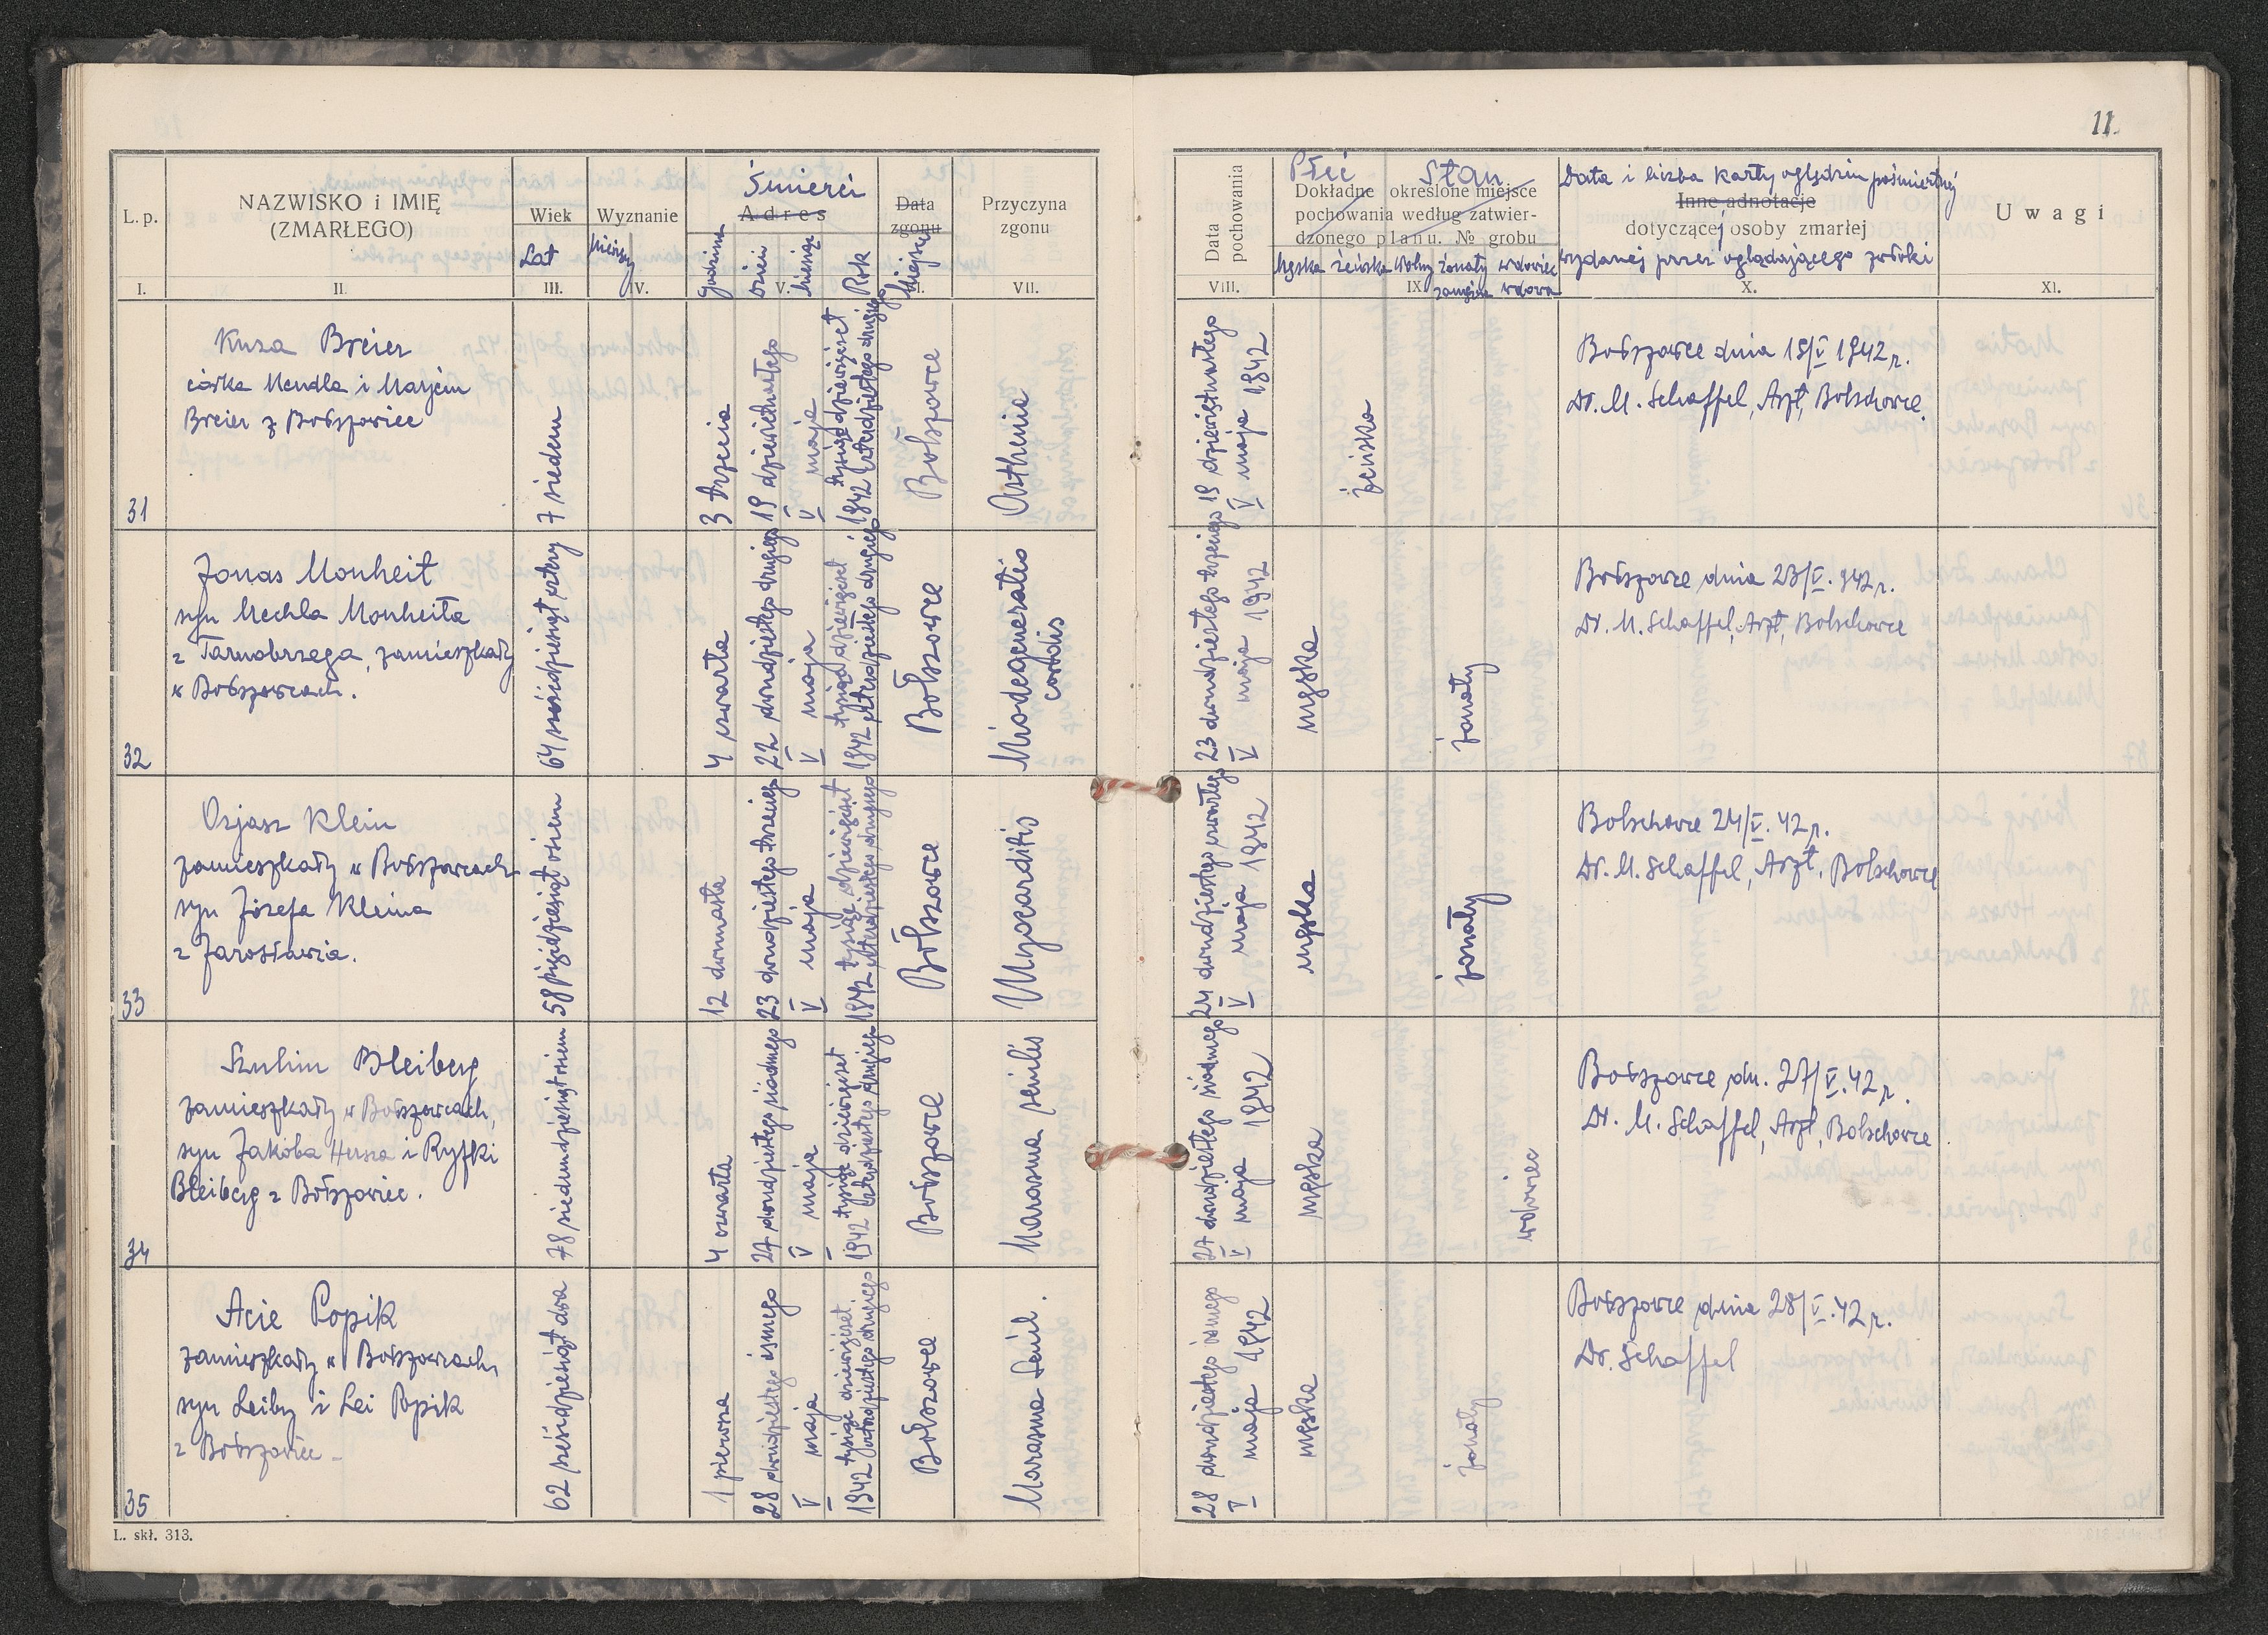 11.
L. p.
NAZWISKO i IMIĘ
(ZMARŁEGO)
Wiek
Lat
Wyznanie
Miesięcy
Śmierci
Adres
godzina
dzień
miesiąc
Rok
Data
zgonu
Miejsce
Przyczyna
zgonu
I.
II.
III.
IV.
V.
VI.
VII.
Data
pochowania
Płeć
Stan
Dokładne określone miejsce
pochowania według zatwier-
dzonego planu. № grobu
Męska żeńska Wolny żonaty wdowiec
zamężna wdowa
Data i liczba karty oględzin pośmiertnej
Inne adnotacje
dotyczącej osoby zmarłej
wydanej przez oglądającego zwłoki
Uwagi
VIII.
IX.
X.
XI.
31
Kusa Breier
córka Mendla i Marjem
Breier z Bołszowiec
7 siedem
3 trzecia
19 dziewiętnastego
V maja
tysiąc dziewięćset
1942 czterdziestego drugiego
Bołszowce
Asthenia
19 dziewiętnastego
V maja 1942
żeńska
Bołszowce dnia 19/V 1942 r.
Dr. M. Schaffel, Arzt, Bolschowce.
32
Jonas Monheit
syn Mechla Monheita
z Tarnobrzega, zamieszkały
w Bołszowcach.
64 sześćdziesiąt cztery
4 czwarta
22 dwudziestego drugiego
V maja
tysiąc dziewięćset
1942 czterdziestego drugiego
Bołszowce
Miodegeneratio
cordis
23 dwudziestego trzeciego
V maja 1942
męska
żonaty
Bołszowce dnia 23/V. 942 r.
Dr. M. Schaffel, Arzt, Bolschowce
33
Ozjasz Klein
zamieszkały w Bołszowcach
syn Józefa Kleina
z Jarosławia.
58 pięćdziesiąt osiem
12 dwunasta
23 dwudziestego trzeciego
V maja
tysiąc dziewięćset
1942 czterdziestego drugiego
Bołszowce
Myocarditis
24 dwudziestego czwartego
V maja 1942
męska
żonaty
Bolschowce 24/V. 42 r.
Dr. M. Schaffel, Arzt, Bolschowce
34
Szulim Bleiberg
zamieszkały w Bołszowcach,
syn Jakóba Hersza i Ryfki
Bleiberg z Bołszowiec.
78 siedemdziesiąt osiem
4 czwarta
27 dwudziestego siódmego
V maja
tysiąc dziewięćset
1942 czterdziestego drugiego
Bołszowce
Marasmus senilis
27 dwudziestego siódmego
V maja 1942
męska
wdowiec
Bołszowce dn. 27/V. 42 r.
Dr. M. Schaffel, Arzt, Bolschowce.
35
Acie Popik
zamieszkały w Bołszowcach,
syn Leiby i Lei Popik
z Bołszowiec -
62 sześćdziesiąt dwa
1 pierwsza
28 dwudziestego ósmego
V maja
tysiąc dziewięćset
1942 czterdziestego drugiego
Bołszowce
Marasmus Senil.
28 dwudziestego ósmego
V maja 1942
męska
żonaty
Bołszowce dnia 28/V. 42 r.
Dr. Schaffel
L. skł. 313.